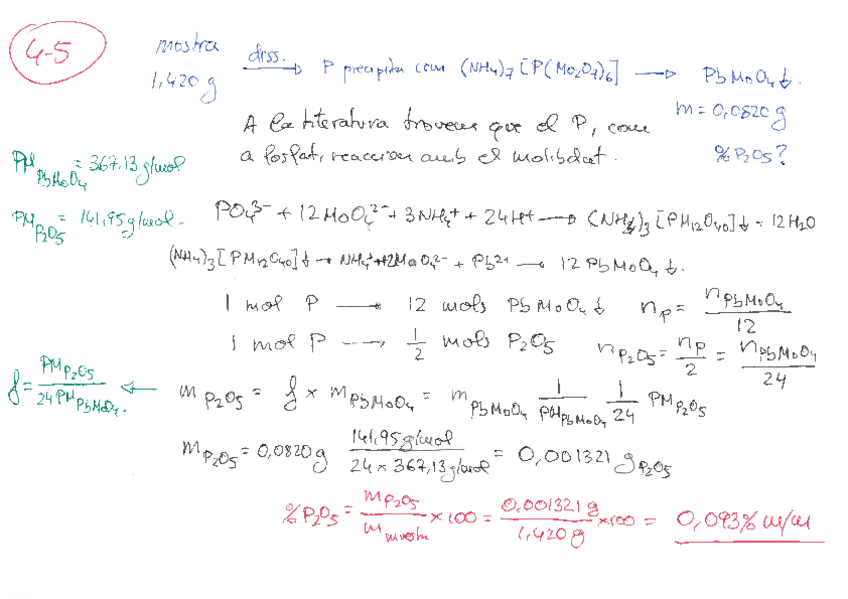 4-5
mostra diss. → P precipita com (NH4)7 [P(Mo2O7)6] → PbMoO4↓.
1,420 g
m = 0,0820 g
% P2O5?
A la literatura trovem que el P, com
a fosfat, reacciona amb el molibdat.
PM PbMoO4 = 367.13 g/mol
PM P2O5 = 141,95 g/mol.
PO4³⁻ + 12 MoO4²⁻ + 3NH4⁺ + 24H⁺ → (NH4)3 [PM12O40]↓ + 12H2O
(NH4)3 [PM12O40]↓ → NH4⁺ + 12MoO4²⁻ + Pb²⁺ → 12 PbMoO4↓.
1 mol P → 12 mols PbMoO4↓ nP = nPbMoO4 / 12
1 mol P → 1/2 mols P2O5 nP2O5 = nP / 2 = nPbMoO4 / 24
f = PM P2O5 / 24 PM PbMoO4. ← m P2O5 = f × m PbMoO4 = m PbMoO4 1 / PM PbMoO4 1 / 24 PM P2O5
m P2O5 = 0,0820 g 141,95 g/mol / 24 × 367,13 g/mol = 0,001321 g P2O5
% P2O5 = m P2O5 / m muestra × 100 = 0,001321 g / 1,420 g × 100 = 0,093% m/m